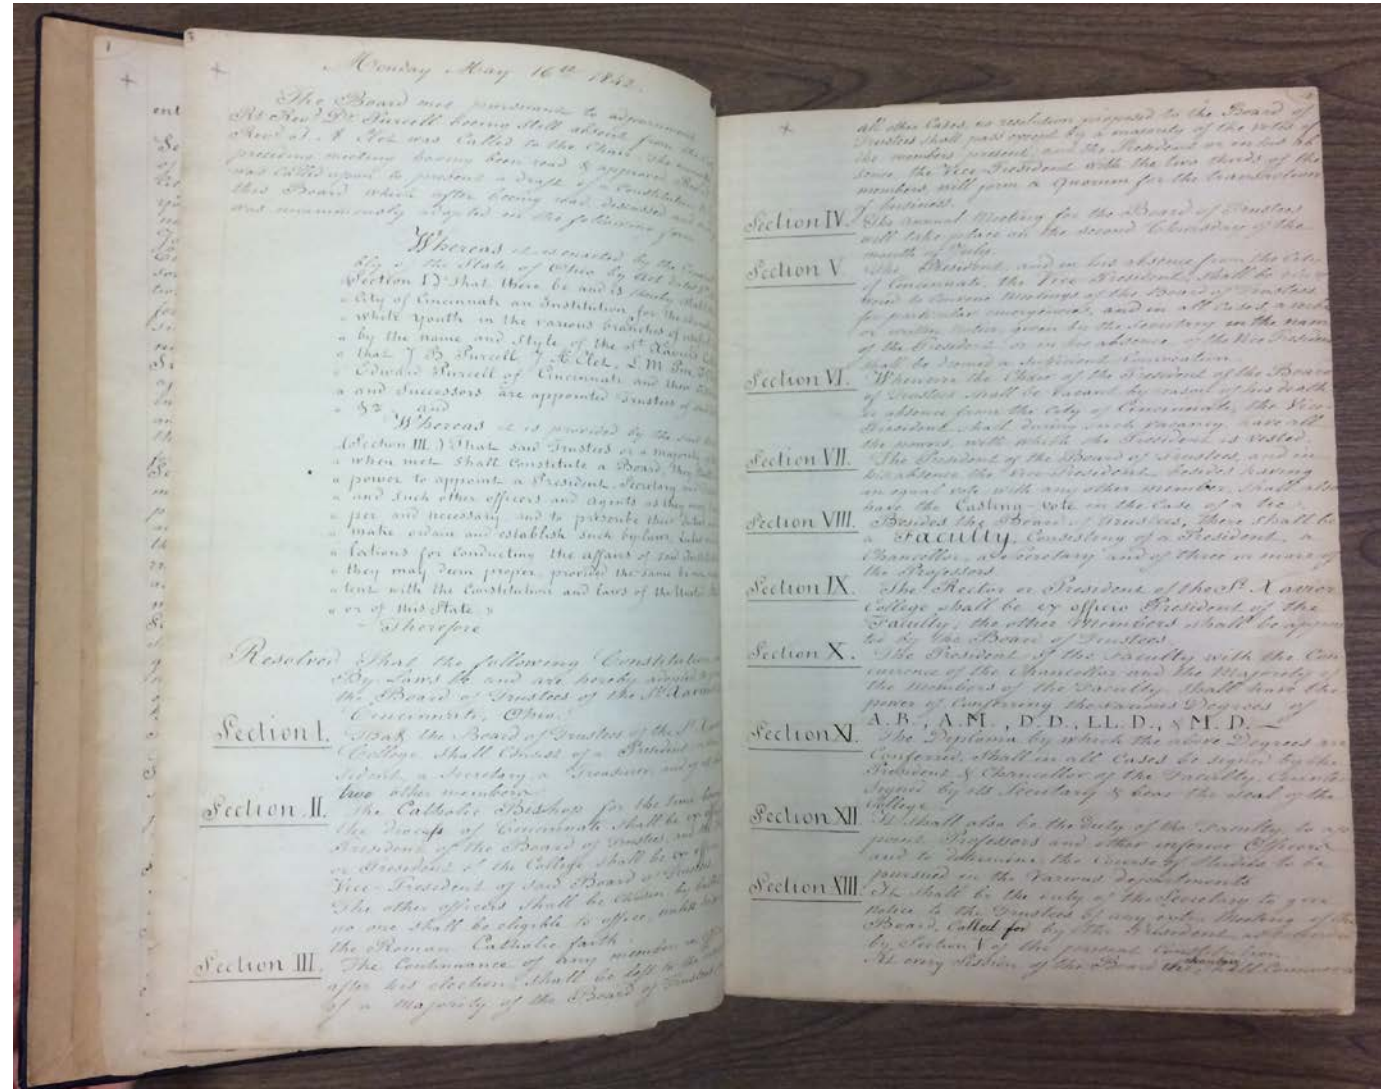 Monday May 16th 1842.
The Board met pursuant to adjournment
Rt Revd Dr Purcell being still absent from the
Revd J. A. Elet was Called to the Chair. The
preceding meeting having been read & approved
was called upon to present a draft of a Constitution
this Board which after being read, discussed and
was unanimously adopted in the following form
Whereas it is enacted by the
of the State of Ohio by Act dated
Section 1) That there be and is hereby
" City of Cincinnati an Institution for the
" white youth in the various branches of
" by the name and style of the St Xavier
" that J B Purcell J A Elet, L M Pin
" Edward Purcell of Cincinnati and their
" and Successors are appointed Trustees of
" &c and
Whereas it is provided by the said
(Section III.) That said Trustees or a majority
" when met shall Constitute a Board they
" power to appoint a President, Secretary
" and such other officers and agents as they may
" per and necessary and to prescribe their duties
" make ordain and establish such by laws
" lations for conducting the affairs of said
" they may deem proper, provided the same be
" tent with the Constitution and laws of the United
" or of this State "
Therefore
Resolved That the following Constitution
By-Laws be and are hereby adopted
the Board of Trustees of the St Xavier
Cincinnati, Ohio.
Section I. That the Board of Trustees of the St Xavier
College shall Consist of a President
sident, a Secretary, a Treasurer, and of
two other members
Section II. The Catholic Bishop for the time being
the diocess of Cincinnati shall be ex
President of the Board of Trustees, and the
or President of the College shall be ex
Vice-President of said Board of Trustees
The other officers shall be Chosen by
no one shall be eligible to office, unless
the Roman Catholic faith.
Section III. The Continuance of any member in
after his election, shall be left to the
of a majority of the Board of Trustees
all other Cases, no resolution proposed to the Board of
Trustees shall pass except by a majority of the votes of
the members present, and the President or in his ab
sence the Vice-President with the two thirds of the
members, will form a Quorum for the transaction
of business.
Section IV. The annual Meeting for the Board of Trustees
will take place on the second Thursday of the
month of July.
Section V. The President, and in his absence from the City
of Cincinnati, the Vice President, shall be
to Convene Meetings of the Board of Trustees
for particular emergencies, and in all Cases, a
or written notice, given by the Secretary in the name
of the President or in his absence, of the Vice President
shall be deemed a sufficient Convocation.
Section VI. Whenever the Chair of the President of the Board
of Trustees shall be vacant by reason of his death
or absence from the City of Cincinnati, the Vice-
President shall during such vacancy, have all
the powers, with which the President is vested.
Section VII. The President of the Board of Trustees, and in
his absence the Vice-President besides having
an equal vote with any other member, shall also
have the Casting-vote in the Case of a tie.
Section VIII. Besides the Board of Trustees, there shall be
a Faculty, Consisting of a President, a
Chancellor, a Secretary and of three or more of
the Professors.
Section IX. The Rector or President of the St Xavier
College shall be ex officio President of the
Faculty, the other Members shall be appoin
ted by the Board of Trustees.
Section X. The President of the Faculty with the Con
currence of the Chancellor and the Majority of
the Members of the Faculty, shall have the
power of Conferring the various Degrees of
A.B., A.M., D.D., LL.D., & M.D.
Section XI. The Diploma by which the above Degrees are
Conferred, shall in all Cases be signed by the
President & Chancellor of the Faculty, Counter
signed by its Secretary & bear the seal of the
College.
Section XII It shall also be the duty of the Faculty to ap
point Professors and other inferior Officers
and to determine the Course of Studies to be
pursued in the Various departments
Section XIII. It shall be the duty of the Secretary to give
notice to the Trustees of any extra Meeting of the
Board, Called for by the President, as
by Section V of the present Constitution.
At every Session of the Board he shall